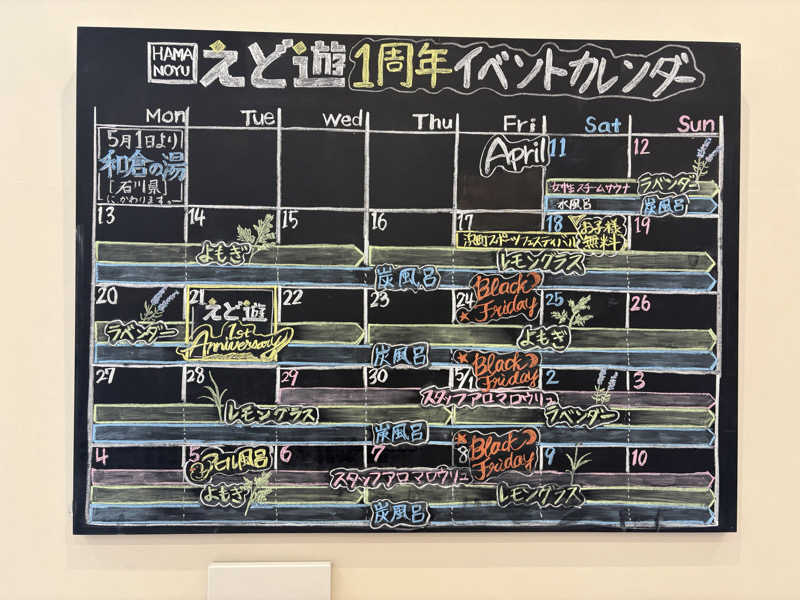 HAMA NOYU えど遊 1周年イベントカレンダー
Mon Tue Wed Thu Fri Sat Sun
5月1日より
和倉の湯
[石川県]
にかわります。
April 11 12
女性スチームサウナ ラベンダー
水風呂 炭風呂
13 14 15 16 17 18 19
浜町スポーツフェスティバル お子様無料
よもぎ レモングラス
炭風呂
20 21 22 23 24 25 26
えど遊
1st
Anniversary
Black
Friday
ラベンダー よもぎ
炭風呂
27 28 29 30 5/1 2 3
Black
Friday
スタッフアロマロウリュ
レモングラス ラベンダー
炭風呂
4 5 6 7 8 9 10
アヒル風呂
Black
Friday
スタッフアロマロウリュ
よもぎ レモングラス
炭風呂